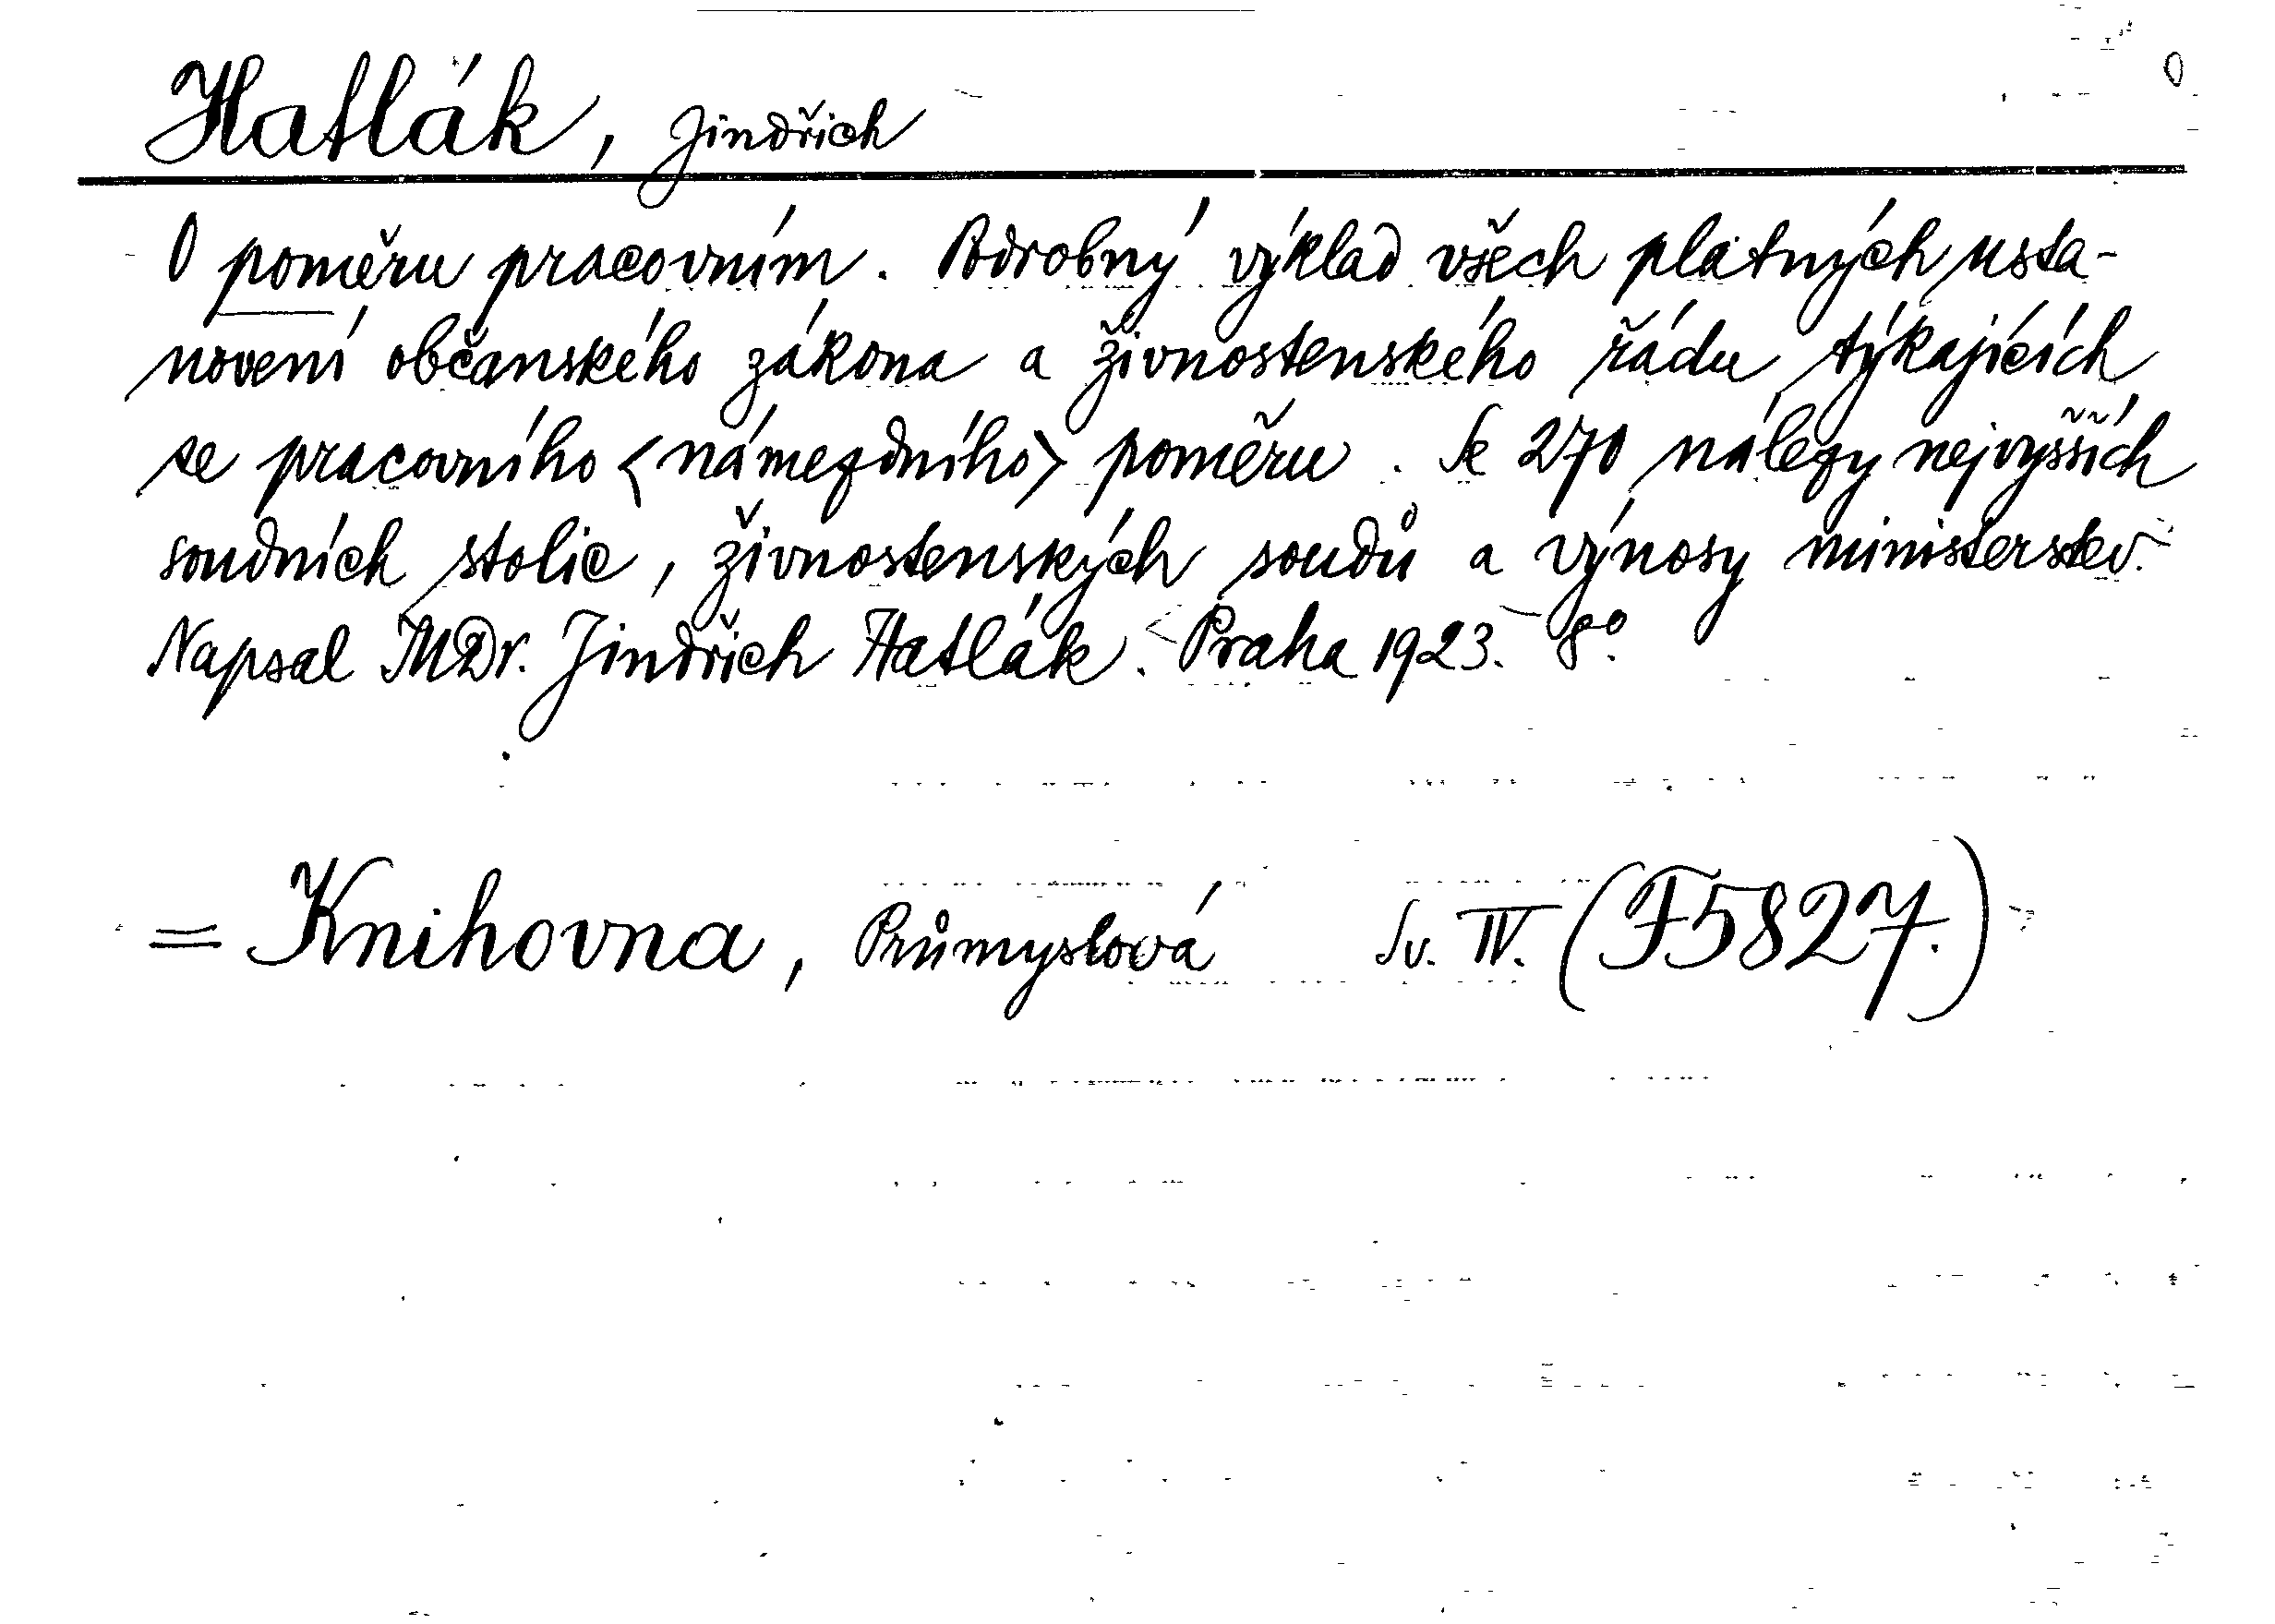 Hatlák, Jindřich
O poměru pracovním. Podrobný výklad všech platných usta-
novení občanského zákona a živnostenského řádu týkajících
se pracovního <námezdního> poměru. Se 270 nálezy nejvyšších
soudních stolic, živnostenských soudů a výnosy ministerstev.
Napsal MDr. Jindřich Hatlák. Praha 1923. 8°.
= Knihovna, Průmyslová Sv. IV. (F5827.)